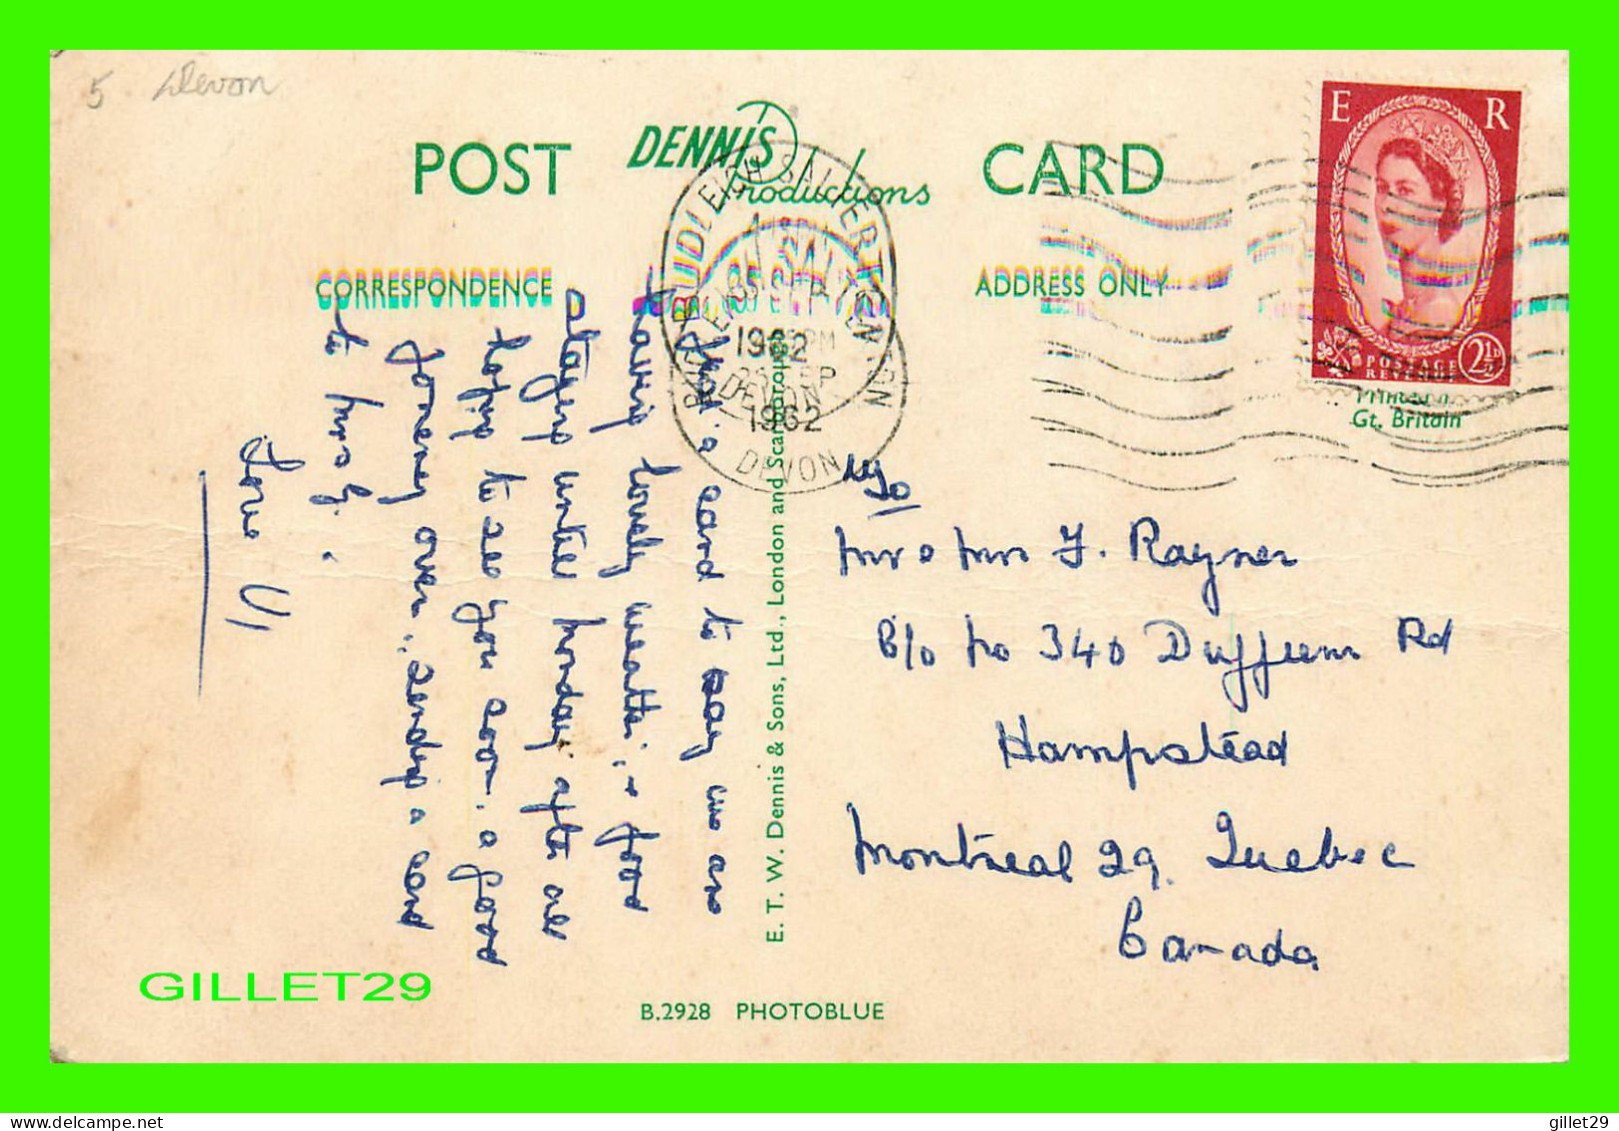 5 Devon
POST CARD
DENNIS
Productions
CORRESPONDENCE
ADDRESS ONLY
BUDLEIGH SALTERTON
1962
DEVON
1962
DEVON
E R
POSTAGE
REVENUE
2½D
Printed in
Gt. Britain
Just a card to say we are
having lovely weather, & food
staying until Monday, after all
hoping to see you soon. a good
journey over, sending a card
to Mrs G.
Love Vi
E. T. W. Dennis & Sons, Ltd., London and Scarborough
Mr & Mrs F. Rayner
C/o No 340 Duffum Rd
Hampstead
Montreal 29. Quebec
Canada
B.2928 PHOTOBLUE
GILLET29
gillet29